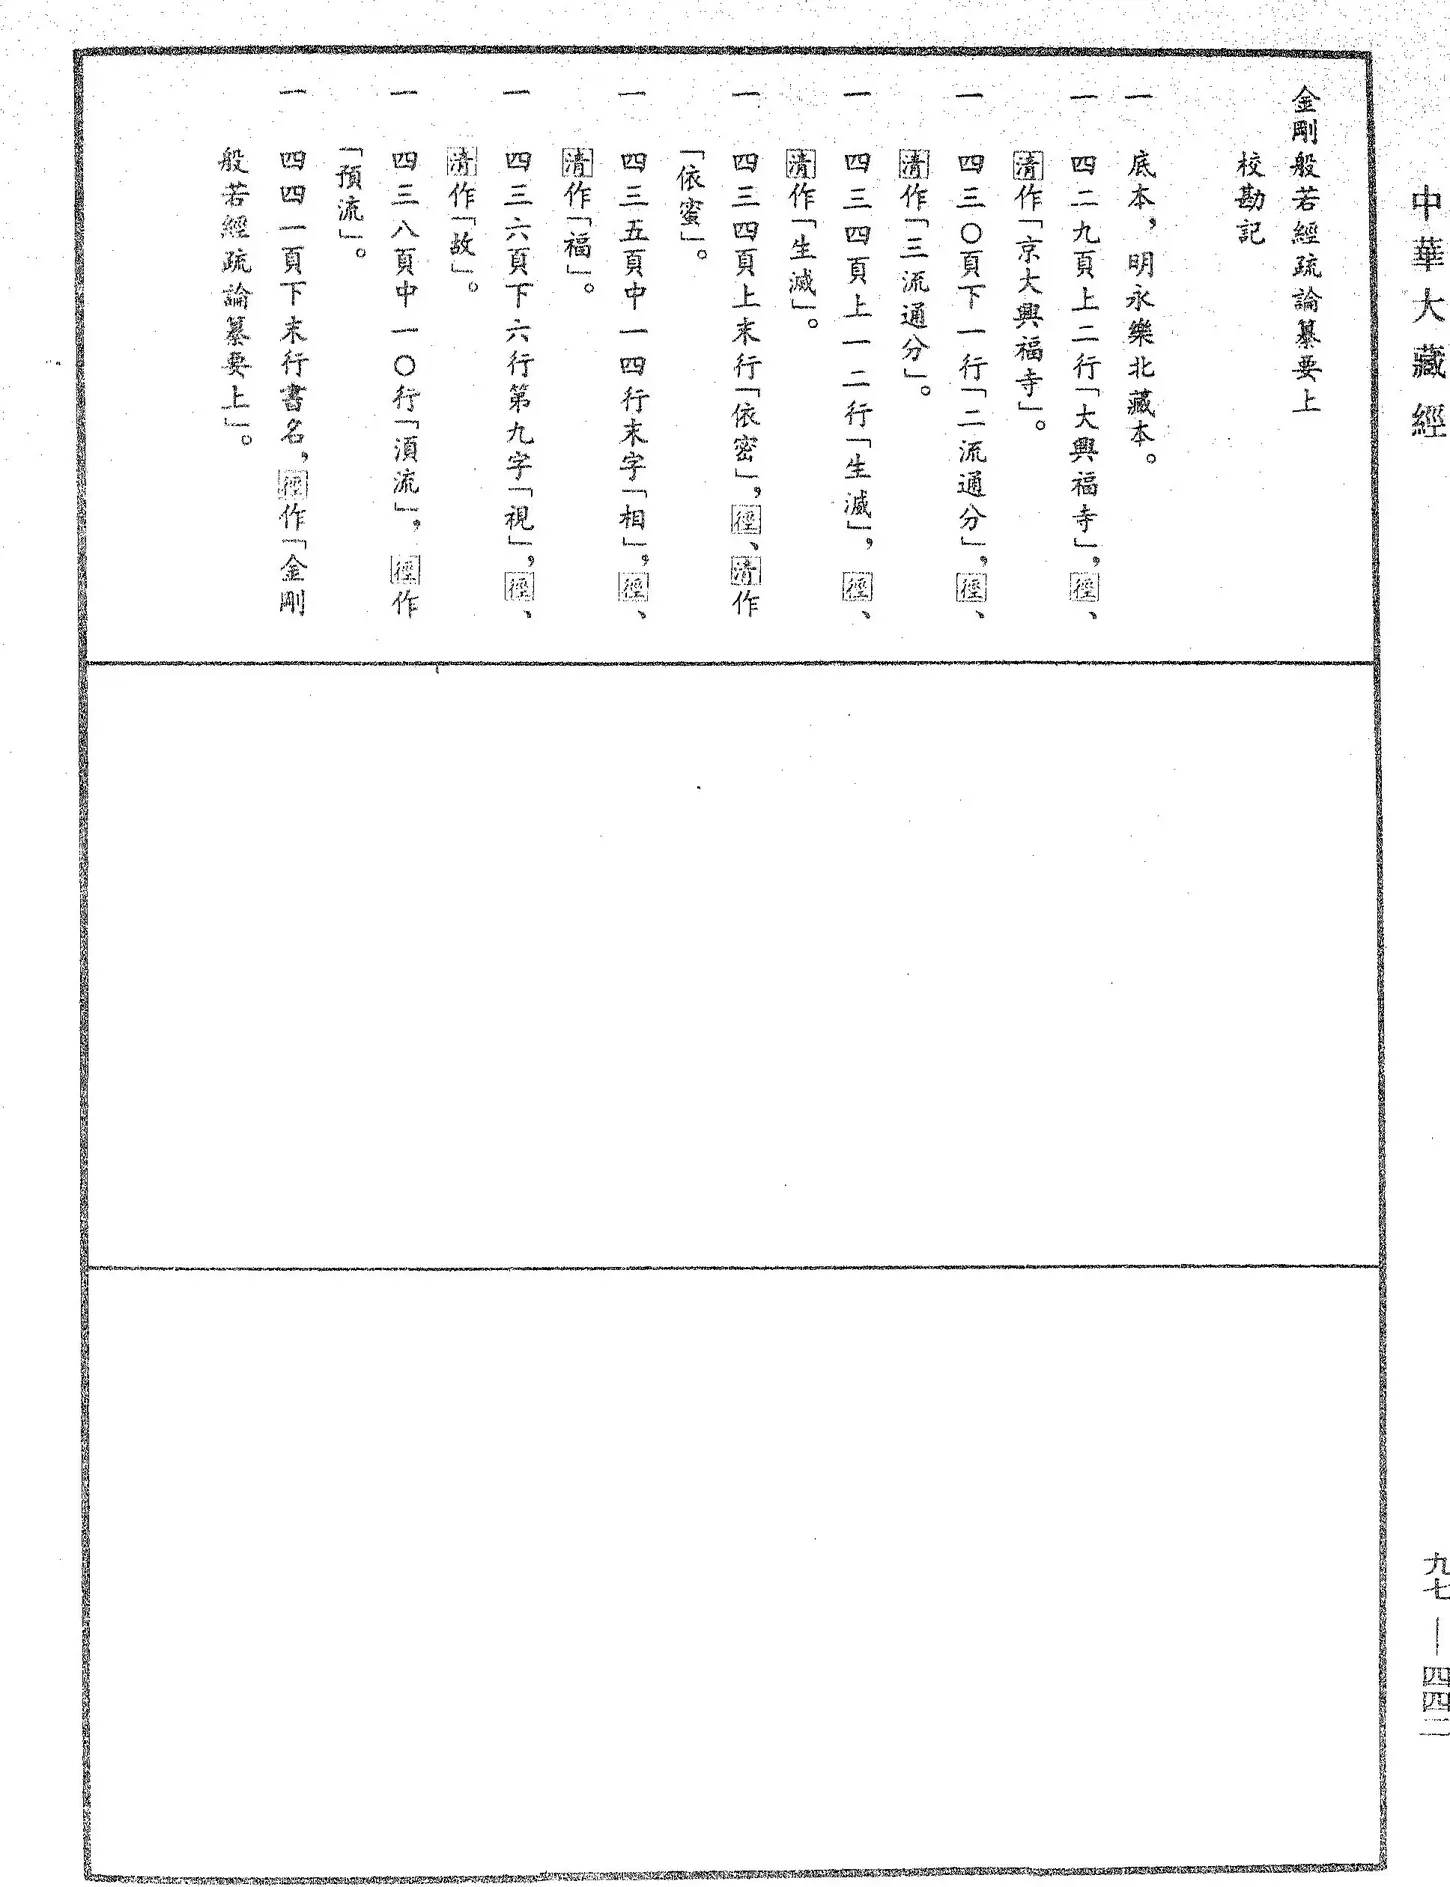 中華大藏經
金剛般若經疏論纂要上
校勘記
一 底本，明永樂北藏本。
一 四二九頁上二行「大興福寺」，徑、
清作「京大興福寺」。
一 四三〇頁下一行「二流通分」，徑、
清作「三流通分」。
一 四三四頁上一二行「生滅」，徑、
清作「生滅」。
一 四三四頁上末行「依密」，徑、清作
「依蜜」。
一 四三五頁中一四行末字「相」，徑、
清作「福」。
一 四三六頁下六行第九字「視」，徑、
清作「故」。
一 四三八頁中一〇行「湏流」，徑作
「預流」。
一 四四一頁下末行書名，徑作「金剛
般若經疏論纂要上」。
九七—四四二